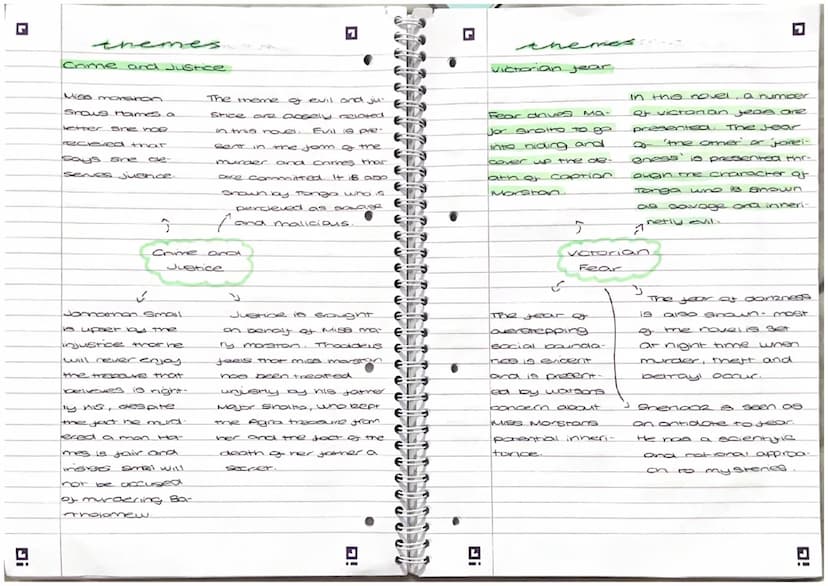 themes
Crime and Justice
Miss morstan
shows Holmes a
letter she has
recieved that
says she de-
serves justice
The theme of evil and ju-
stice are closely related
in this novel. Evil is pre-
sent in the form of the
murder and crimes that
are committed. It is also
shown by Tonga who is
percieved as savage
and malicious.
Crime and
Justice
Johnathan Small
is upset by the
injustice that he
will never enjoy
the treasure that
believes is right-
ly his, despite
the fact he murd-
ered a man. Ho-
mes is fair and
insists Small will
not be accused
of murdering Ba-
rtholomew
Justice is sought
on behalf of Miss ma-
ry morstan. Thaddeus
feels that miss morstan
has been treated
unjustly by his father
Major Sholto, who kept
the Agra treasure from
her and the fact of the
death of her father a
secret.
themes
Victorian fear
Fear drives Ma-
jor Sholto to go
into hiding and
cover up the de-
ath of Caption
Morstan.
In this novel, a number
of victorian fears are
presented. The fear
of 'the other' or 'forei-
gness' is presented thr-
ough the character of
Tonga who is shown
as savage and inheri-
netly evil.
Victorian
Fear
The fear of
overstepping
social bounda-
ries is evident
and is present-
ed by watsons
concern about
Miss Morstans
potential inheri-
tance.
The fear of darkness
is also shown - most
of the novel is set
at night time when
murder, theft and
betrayl occur.
Sherlock is seen as
an antidote to fear.
He has a scientific
and rational approa-
ch to mysteries.